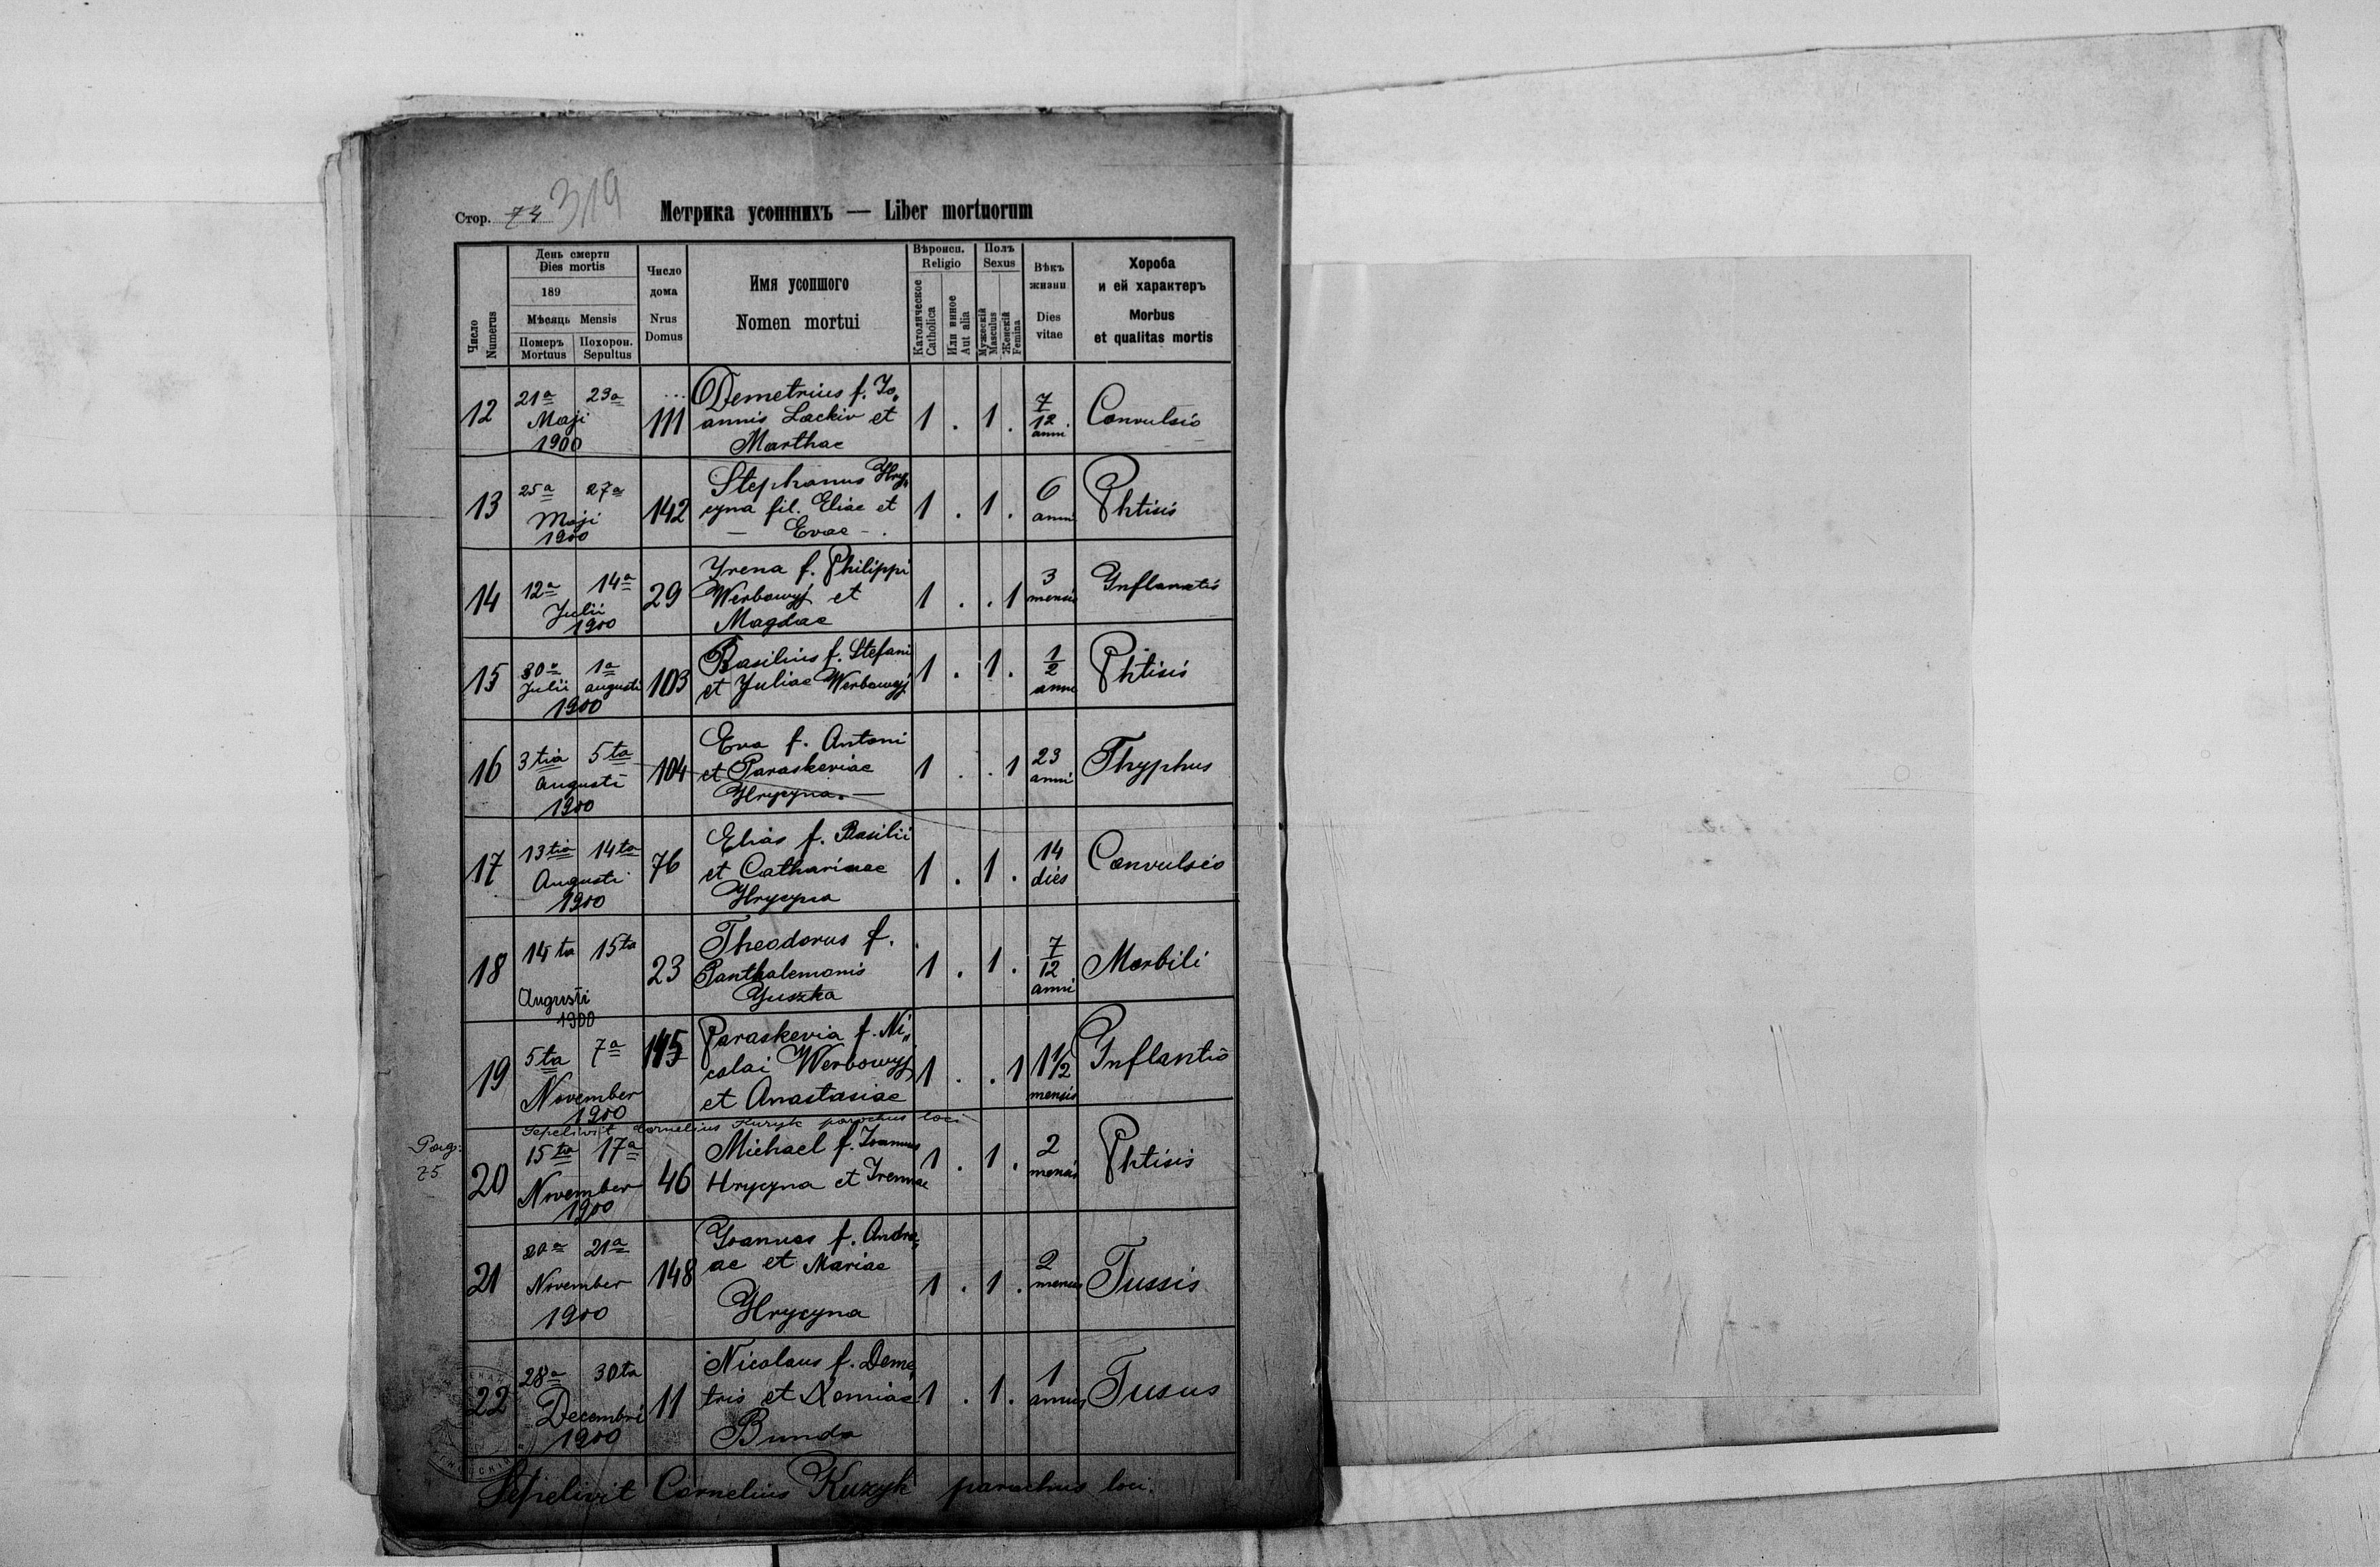 Стор. 74 319
Метрика усопшихъ — Liber mortuorum
Число Numerus
День смерти
Dies mortis
189
Мѣсяць Mensis
Померъ Mortuus
Похорон. Sepultus
Число дома
Nrus Domus
Имя усопшого
Nomen mortui
Вѣроисп.
Religio
Католическое Catholica
Или инное Aut alia
Полъ
Sexus
Мужескій Masculus
Женскій Femina
Вѣкъ жизни
Dies vitae
Хороба
и ей характеръ
Morbus
et qualitas mortis
12 21a 23a Maji 1900 111
Demetrius f. Jo„
annis Lackiv et
Marthae
1 . 1 . 7/12 anni Convulsio
13 25a 27a Maji 1900 142
Stephanus Hry„
cyna fil. Eliae et
— Evae — .
1 . 1 . 6 anni Phtisis
14 12a 14a Julii 1900 29
Yrena f. Philippi
Werbowyj et
Magdae
1 . . 1 3 mensis Inflamatio
15 30a Julii 1a augusti 1900 103
Basilius f. Stefani
et Juliae Werbowyj
1 . 1 . 1/2 anni Phtisis
16 3tia 5ta augusti 1900 104
Eva f. Antoni
et Paraskeviae
Hrycyna. —
1 . . 1 23 anni Thyphus
17 13tia 14ta Augusti 1900 76
Elias f. Basilii
et Catharinae
Hrycyna
1 . 1 . 14 dies Convulsio
18 14ta 15ta Augusti 1900 23
Theodorus f.
Panthalemonis
Juszka
1 . 1 . 7/12 anni Morbili
19 5ta 7a November 1900 145
Paraskevia f. Ni„
colai Werbowyj
et Anastasiae
1 . . 1 1 1/2 mensis Inflantio
Sepelivit Cornelius Kuzyk parochus loci
Pag: 75
20 15ta 17a November 1900 46
Michael f. Joannes
Hrycyna et Irennae
1 . 1 . 2 mensis Phtisis
21 20a 21a November 1900 148
Joannes f. Andre„
ae et Mariae
Hrycyna
1 . 1 . 2 menses Tussis
22 28a 30ta Decembri 1900 11
Nicolaus f. Deme„
tris et Xeniae
Bunda
1 . 1 . 1 annus Tusus
Sepelivit Cornelius Kuzyk parochus loci.